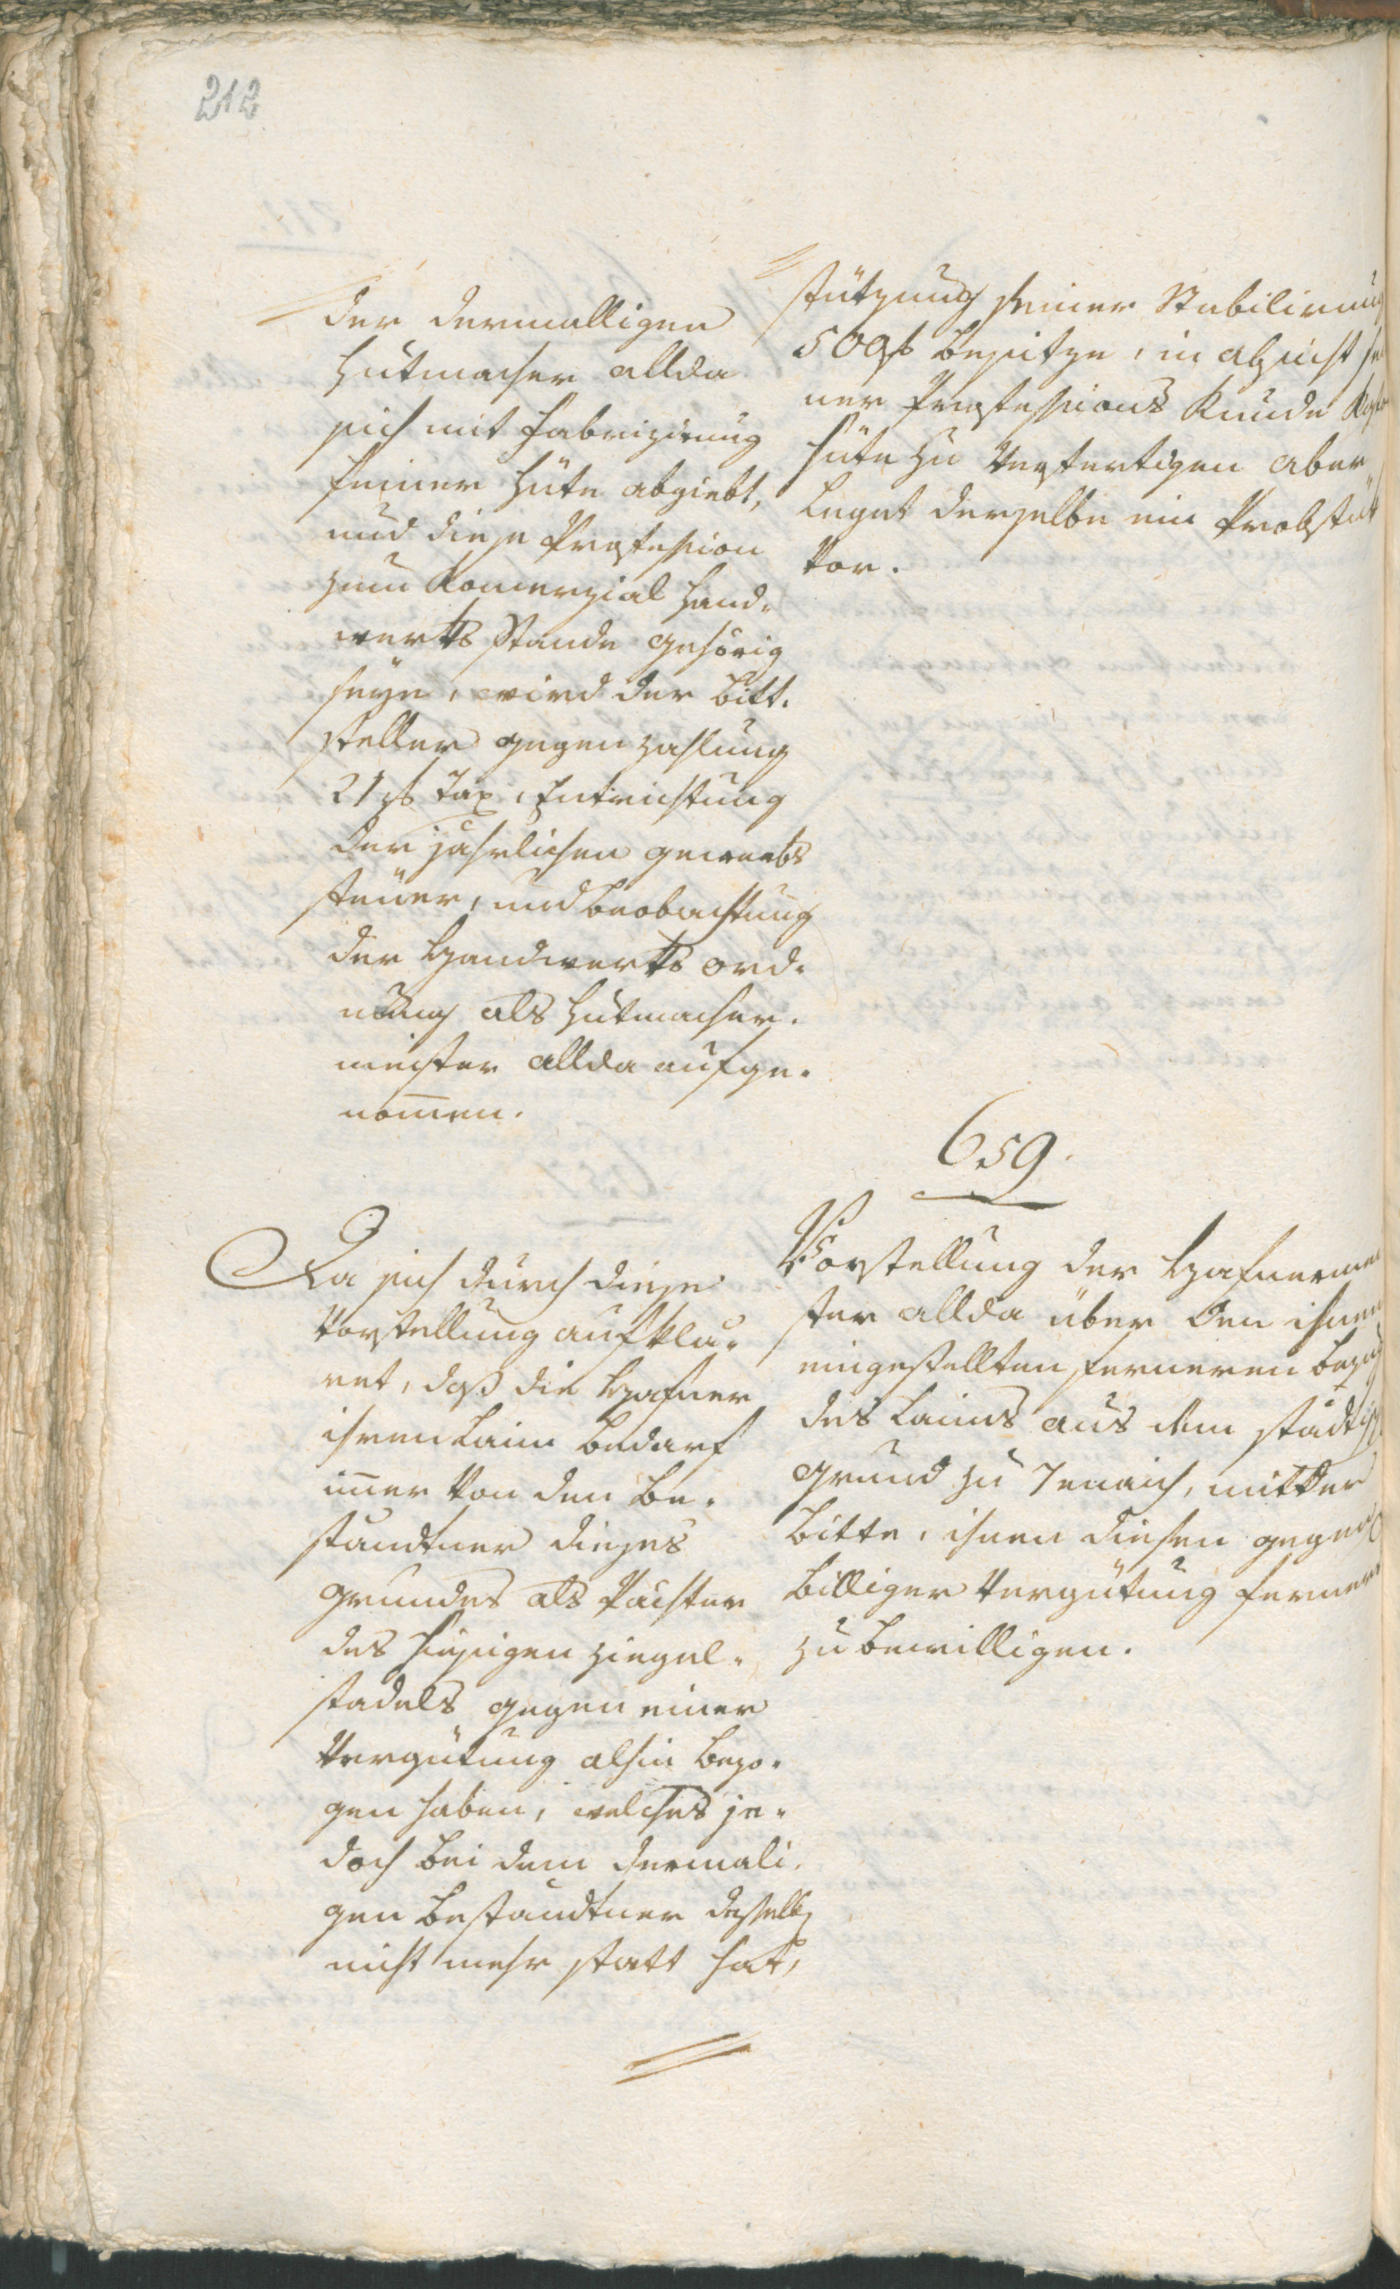 212
der dermalligen
Hutmacher allda
sich mit Fabrizierung
feiner Hüte abgiebt,
und diese Profession
zum Komerzial Hand-
werks Stande gehörig
seye, wird der Bitt-
steller gegen Zahlung
21 f Tax, Entrichtung
der jährlichen gewerbs
steuer, und beobachtung
der Handwerks ord-
nung als Hutmacher-
meister allda aufge-
nom̄en.
Da sich durch diese
Vorstellung aufklä-
ret, daß die Hafner
ihren Laim bedarf
im̄er von den Be-
standtner dieses
grundes als Pächter
des hiesigen Ziegel-
stadels gegen einer
Vergütung alhin bezo-
gen haben, welches je-
doch bei dem dermali-
gen Bestandtner desselb
nicht mehr statt hat,
stützung seiner Stabilirung
500 f besitze, in absicht sei
ner Professions Kunde
Hüte zu verfertigen aber
leget derselbe ein Probstük
vor.
659.
Vorstellung der Hafnermei
ster allda über den ihnen
eingestellten ferneren bezug
des Laims aus dem städtisch
grund zu Jenaich, mit der
Bitte, ihnen diesen gegen
billiger Vergütung ferner
zu bewilligen.